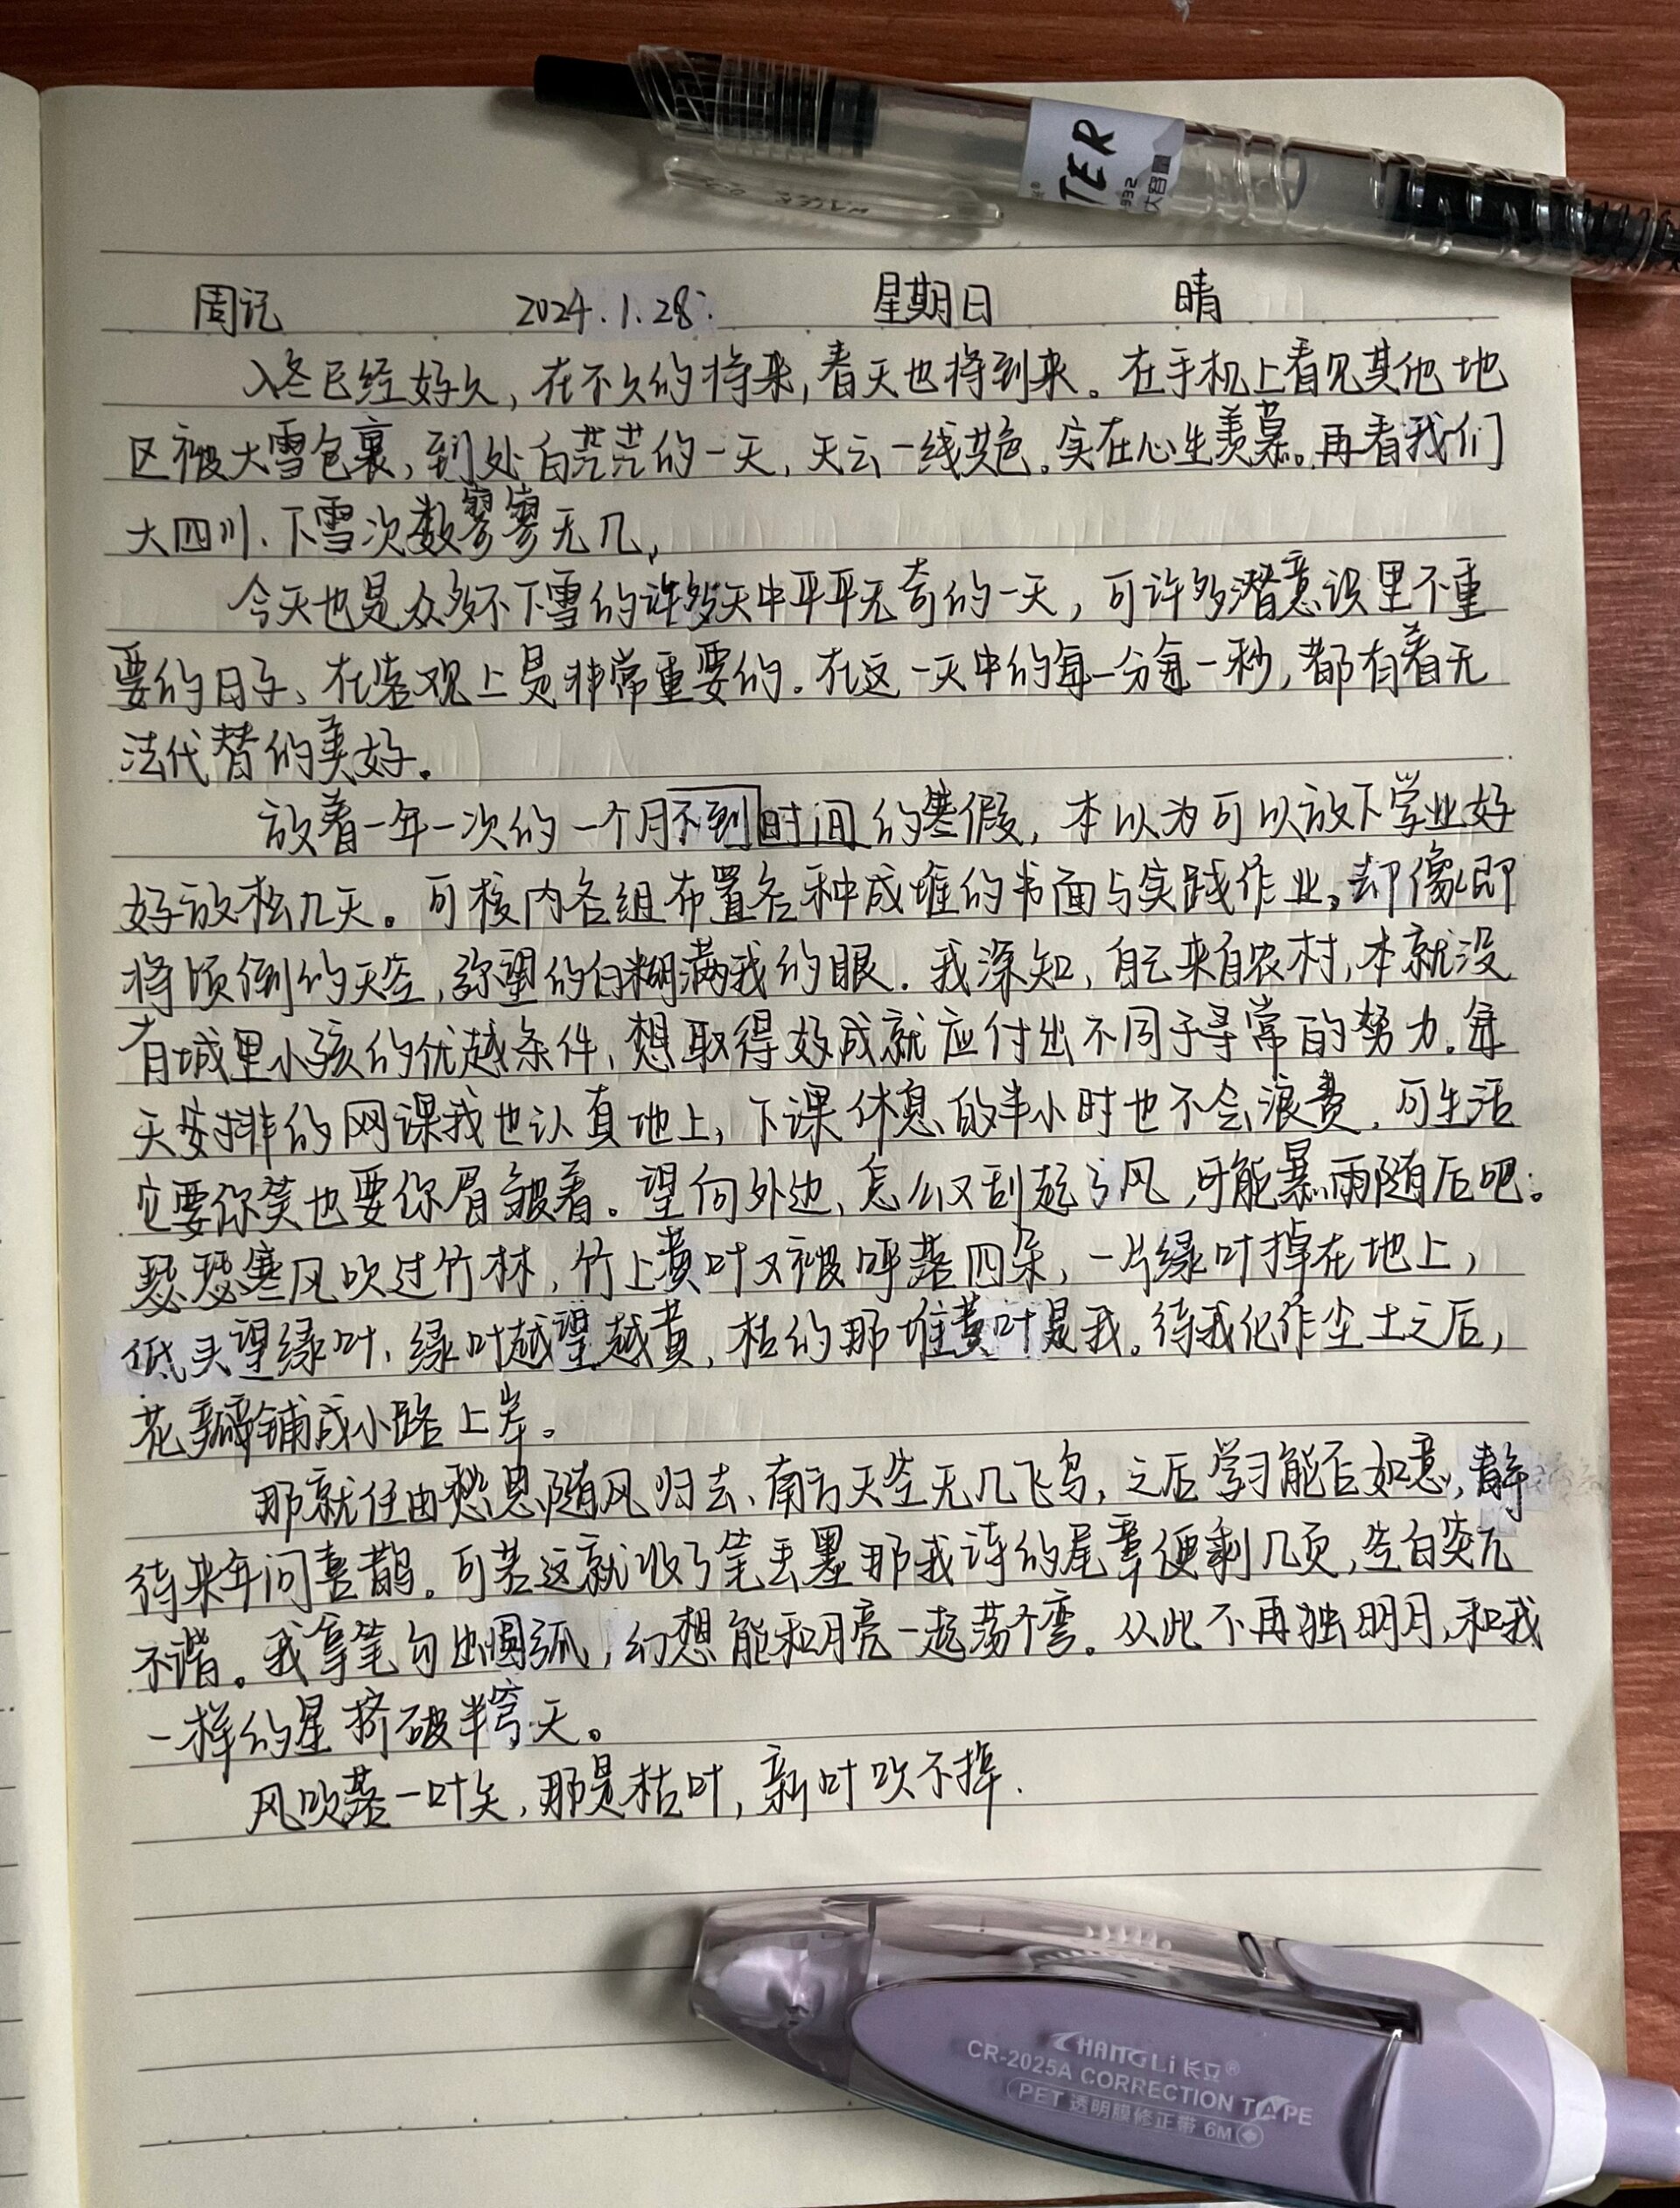 TER
932
大容量
周记 2024.1.28. 星期日 晴
入冬已经好久，在不久的将来，春天也将到来。在手机上看见其他地
区被大雪包裹，到处白茫茫的一天，天云一线共色。实在心生羡慕。再看我们
大四川、下雪次数寥寥无几，
今天也是众多不下雪的许多天中平平无奇的一天，可许多潜意识里不重
要的日子、在客观上是非常重要的。在这一天中的每一分每一秒，都有着无
法代替的美好。
放着一年一次的一个月不到时间的寒假，本以为可以放下学业好
好放松几天。可校内各组布置各种成堆的书面与实践作业，却像即
将倾倒的天空，弥望的白糊满我的眼。我深知，自己来自农村，本就没
有城里小孩的优越条件，想取得好成就应付出不同于寻常的努力。每
天安排的网课我也认真地上，下课休息的半小时也不会浪费，可生活
它要你笑也要你眉皱着。望向外边，怎么又刮起了风，可能暴雨随后吧。
瑟瑟寒风吹过竹林，竹上黄叶又被呼落四朵，一片绿叶掉在地上，
低头望绿叶、绿叶越望越黄，枯的那堆黄叶是我。待我化作尘土之后，
花瓣铺成小路上岸。
那就任由愁思随风归去、南方天空无几飞鸟，之后学习能否如意，静
待来年问喜鹊。可若这就收了笔丢墨那我诗的尾章便剩几页，空白突兀
不谐。我拿笔勾出圆弧，幻想能和月亮一起荡个弯。从此不再独明月，和我
一样的星挤破半穹天。
风吹落一叶矢，那是枯叶，新叶吹不掉.
CHANGLi 长立®
CR-2025A CORRECTION TAPE
PET 透明膜修正带 6M